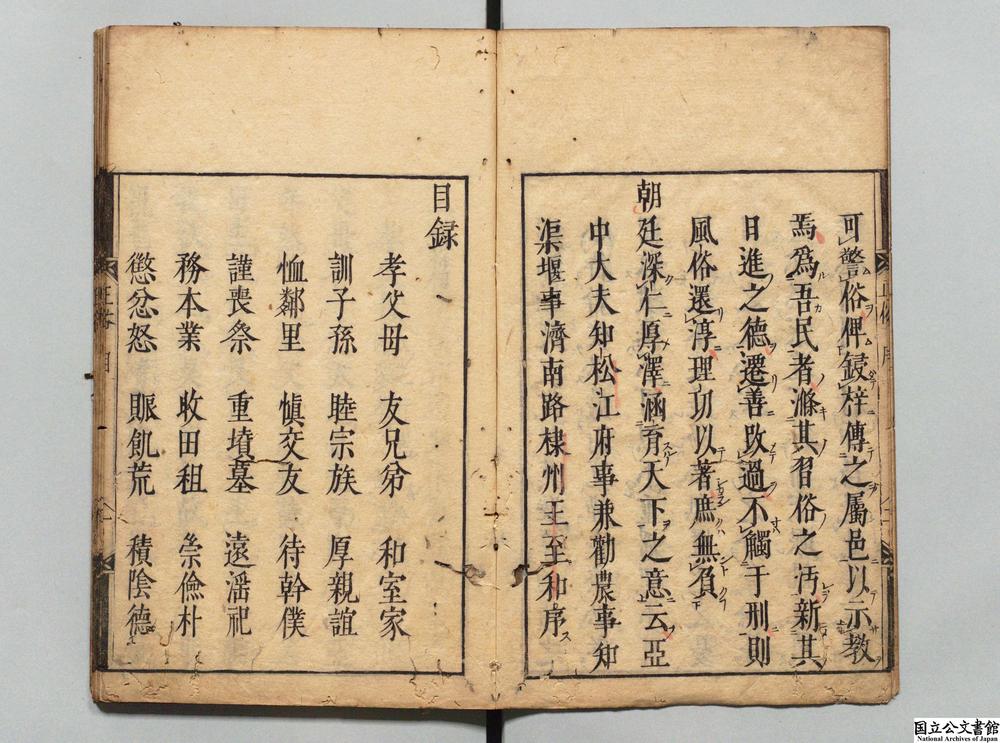 可警俗俾鋟梓傳之属邑以示教
焉爲吾民者滌其習俗之汚新其
日進之德遷善改過不觸于刑則
風俗還淳理切以著庶無負
朝廷深仁厚澤涵育天下之意云亞
中大夫知松江府事兼勸農事知
渠堰事濟南路棣州王至和序
目録
孝父母　友兄弟　和室家
訓子孫　睦宗族　厚親誼
恤鄰里　愼交友　待幹僕
謹喪祭　重墳墓　遠滛祀
務本業　收田租　崇儉朴
懲忿怒　賑飢荒　積陰德
国立公文書館
National Archives of Japan